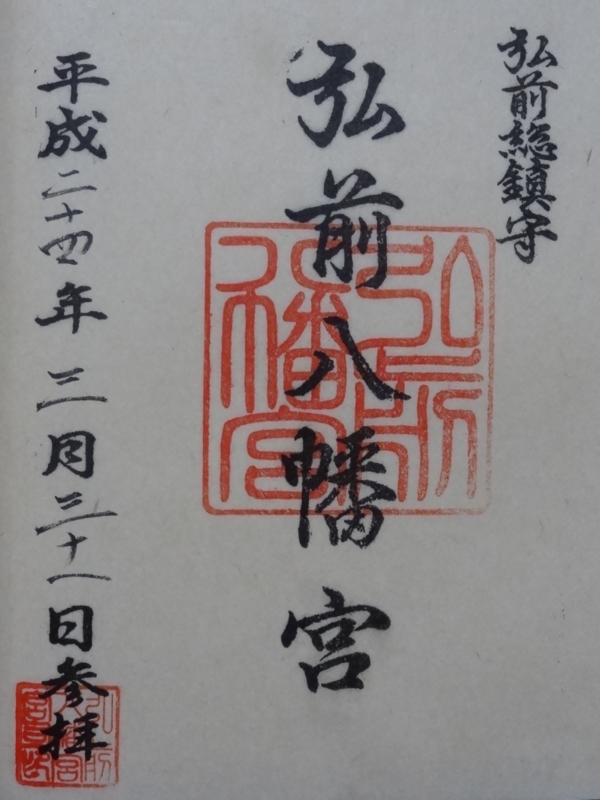 弘前総鎮守
弘前八幡宮
平成二十四年三月三十一日参拝
弘前八幡宮